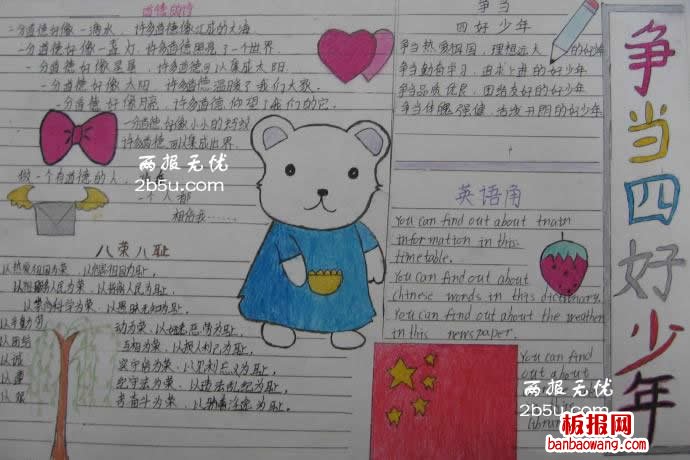 道德的诗
一分道德好像一滴水，许多道德像汇成的大海
一分道德好像一盏灯，许多道德照亮了一个世界
一分道德好像星星，许多道德可以集成太阳
一分道德好像太阳，许多道德温暖了我们大家
一分道德好像月亮，许多道德仰望了我们的它
一分道德好像小小的
许多道德可以集成世界
做一个有道德的人，
一个人都
相信我……
八荣八耻
以热爱祖国为荣，以危害祖国为耻，
以服务人民为荣，以背离人民为耻，
以崇尚科学为荣，以愚昧无知为耻，
以辛勤劳动为荣，以好逸恶劳为耻，
以团结互助为荣，以损人利己为耻，
以诚实守信为荣，以见利忘义为耻，
以遵纪守法为荣，以违法乱纪为耻，
以艰苦奋斗为荣，以骄奢淫逸为耻。
争当
四好少年
争当热爱祖国，理想远大的好少年
争当勤奋学习，追求上进的好少年
争当品德优良，团结友好的好少年
争当体魄强健，活泼开朗的好少年
英语角
You can find out about train
information in this
timetable.
You can find out about
chinese words in this dictionary.
You can find out about the weather
in this newspaper.
You can find
out about
争当四好少年
两报无优
2b5u.com
两报无优
2b5u.com
板报网
banbaowang.com